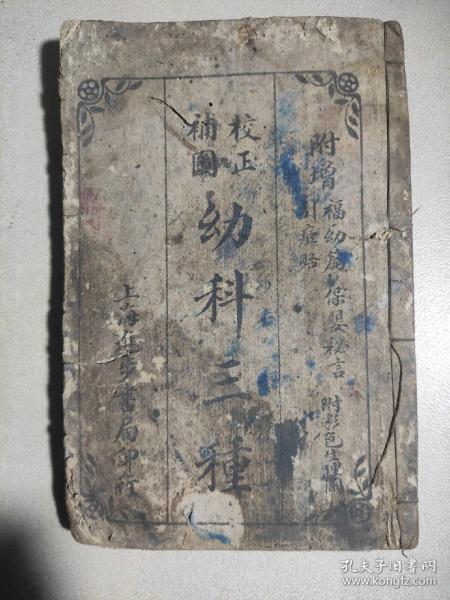 附增福幼篇保嬰秘言 附彩色生理圖
痘略
校正
補圖
幼科三種
上海書局印行
孔夫子旧书网
www.kongfz.com